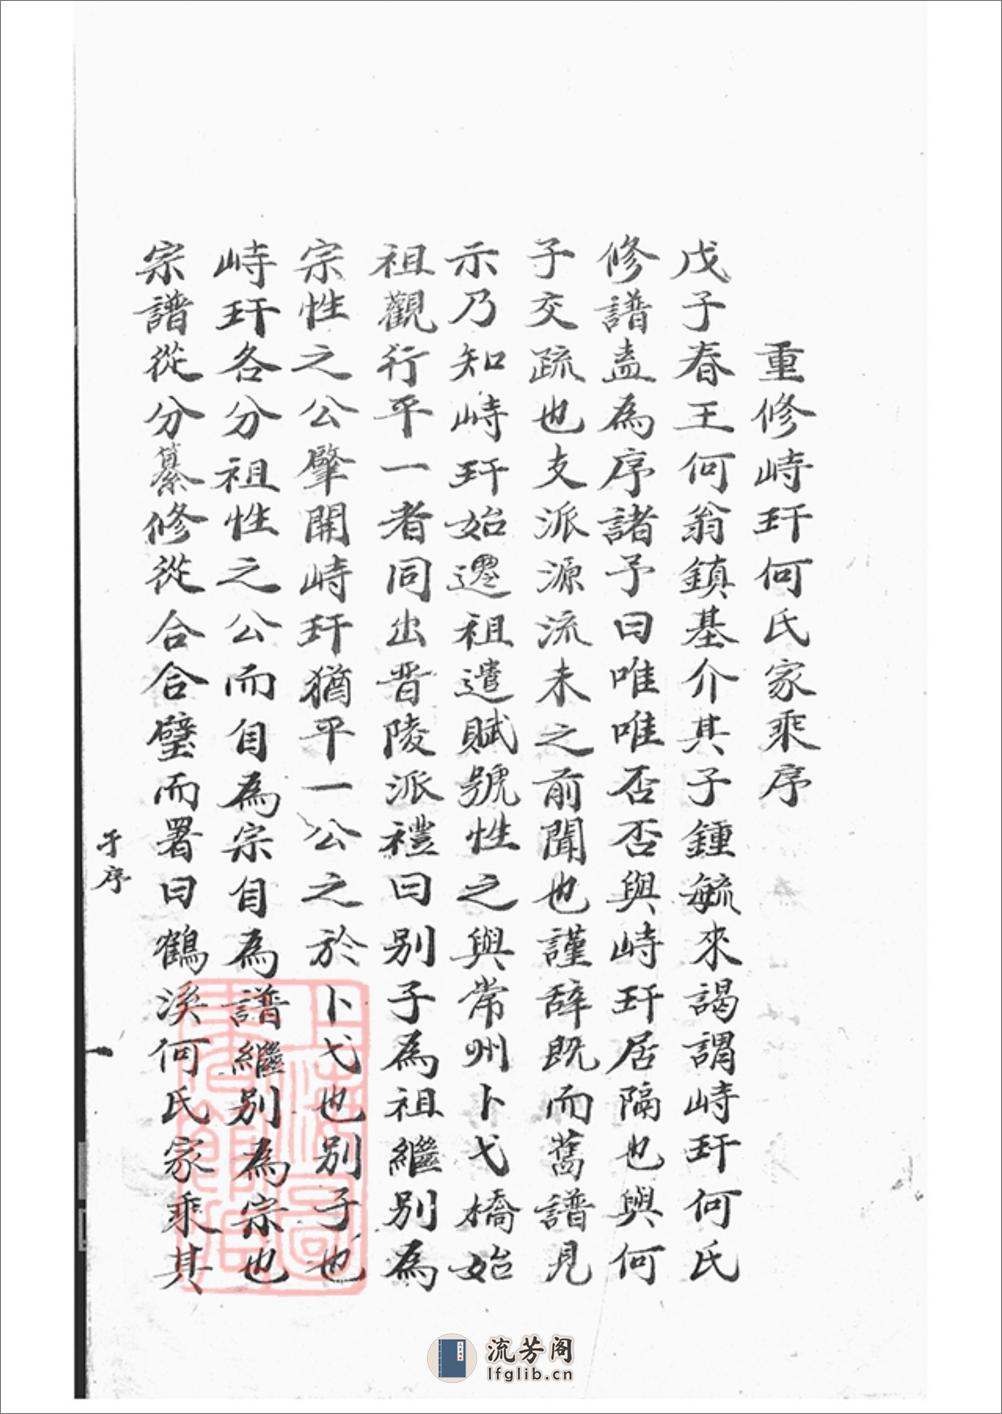 重修峙玕何氏家乘序
戊子春王何翁鎮基介其子鍾毓來謁謂峙玕何氏
修譜盍為序諸予曰唯唯否否與峙玕居隔也與何
子交疏也支派源流未之前聞也謹辞既而舊譜見
示乃知峙玕始遷祖遣賦號性之與常州卜弋橋始
祖觀行平一者同出晋陵派禮曰别子為祖繼别為
宗性之公肇開峙玕猶平一公之於卜弋也别子也
峙玕各分祖性之公而自為宗自為譜繼别為宗也
宗譜從分纂修從合合璧而署曰鶴溪何氏家乘其
于序
一
上海圖書館藏
流芳阁
lfglib.cn